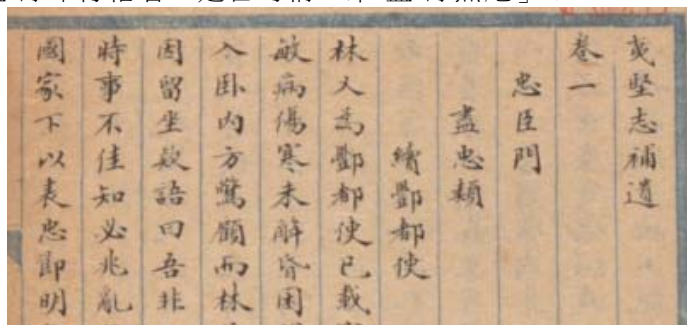 夷堅志補遺
卷一
忠臣門
盡忠類
續酆都使
林乂為酆都使已載
敏病傷寒未解昏困
入卧內方驚顧而林
因留坐款語曰吾非
時事不佳知必兆亂
國家下以表忠即明